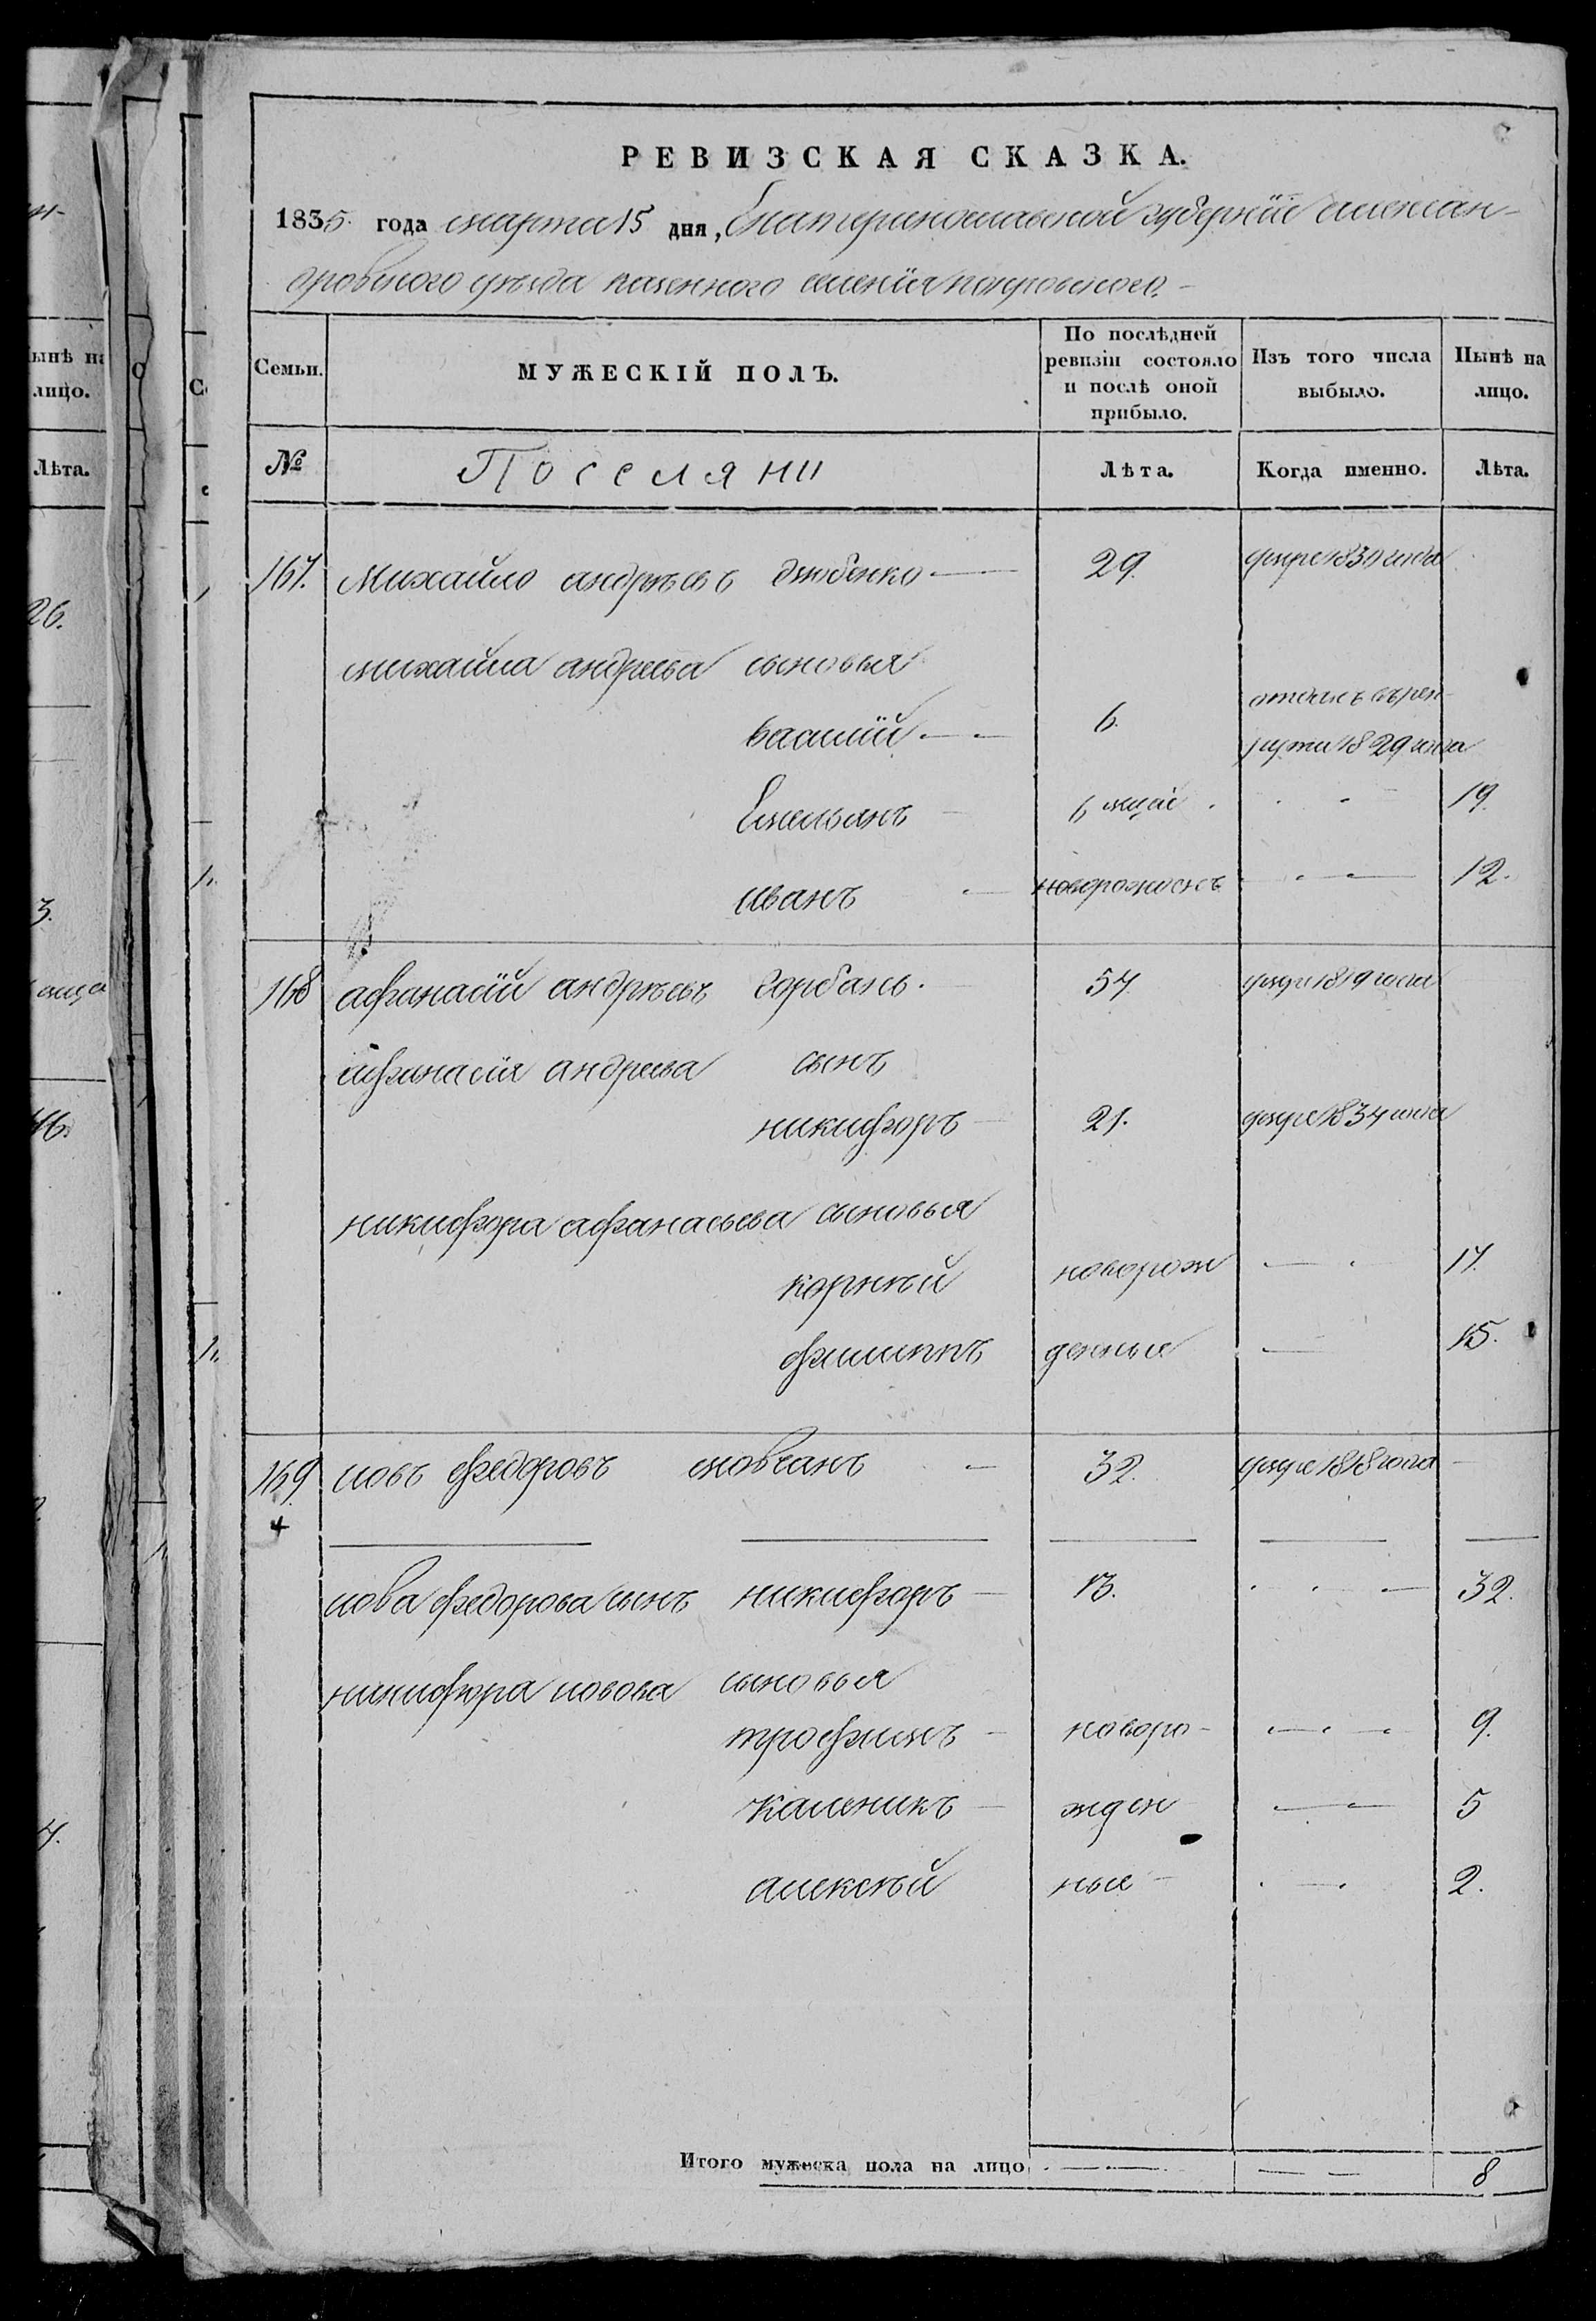 РЕВИЗСКАЯ СКАЗКА.
1835. года марта 15 дня, Екатеринославской губернiи алексан-
дровского уезда казенного селенiя покровского.
Семьи. МУЖЕСКІЙ ПОЛЪ. По послѣдней ревизіи состояло и послѣ оной прибыло. Изъ того числа выбыло. Нынѣ на лицо.
№ Поселяни Лѣта. Когда именно. Лѣта.
167. Михайло андрѣевъ дзюбенко 29. умре 1830 года
михайла андреева сыновья
василiй 6. отданъ врек-
руты 1829 года
Емельянъ 6 мцовъ 19.
иванъ новорожденъ 12.
168 афанасiй андрѣевъ горбань. 54 умре 1819 года
афанасiя андреева сынъ
никифоръ 21. умре 1834 года
никифора афанасьева сыновья
корнѣй новорож 17.
филиппъ денные 15.
169. иовъ федоровъ мовчанъ 32. умре 1818 года
иова федорова сынъ никифоръ 13. 32.
никифора иовова сыновья
трофимъ новоро- 9.
каленикъ жден 5
алексѣй ные 2.
Итого мужеска пола на лицо 8
ынѣ на
лицо.
Лѣта.
26.
3.
46.